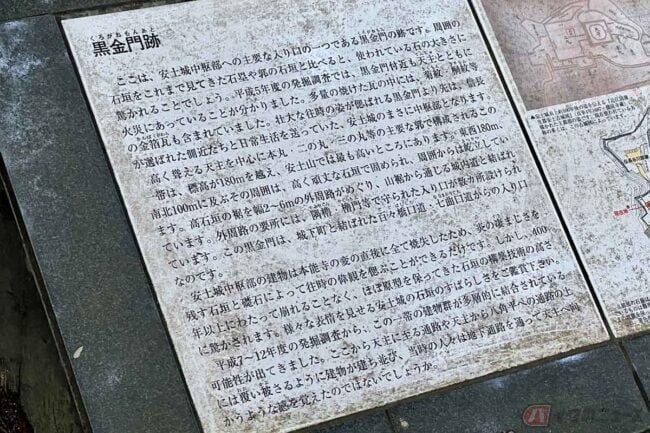 くろがねもんあと
黒金門跡
ここは、安土城中枢部への主要な入り口の一つである黒金門の跡です。周囲の
石垣をこれまで見てきた石塁や郭の石垣と比べると、使われている石の大きさに
驚かれることでしょう。平成5年度の発掘調査では、黒金門付近も天主とともに
火災にあっていることが分かりました。多量の焼けた瓦の中には、菊紋・桐紋等
の金箔瓦も含まれていました。壮大な往時の姿が偲ばれる黒金門より先は、信長
が選ばれた側近たちと日常生活を送っていた、安土城のまさに中枢部となります。
高く聳える天主を中心に本丸・二の丸・三の丸等の主要な郭で構成されるこの
一帯は、標高が180mを越え、安土山では最も高いところにあります。東西180m、
南北100mに及ぶその周囲は、高く頑丈な石垣で固められ、周囲からは屹立してい
ます。高石垣の裾を幅2〜6mの外周路がめぐり、山裾から通じる城内道と結ばれ
ています。外周路の要所には、隅櫓・櫓門等で守られた入り口が数ヶ所設けられ
ています。この黒金門は、城下町と結ばれた百々橋口道・七曲口道からの入り口
なのです。
安土城中枢部の建物は本能寺の変の直後に全て焼失したため、炎の凄まじさを
残す石垣と礎石によって往時の偉観を偲ぶことができるだけです。しかし、400
年以上にわたって崩れることなく、ほぼ原型を保ってきた石垣の構築技術の高さ
に驚かされます。様々な表情を見せる安土城の石垣のすばらしさをご鑑賞下さい。
平成7〜12年度の発掘調査から、この一帯の建物群が多層的に結合されている
可能性が出てきました。ここから天主に至る通路や天主から八角平への通路の上
には覆い被さるように建物が建ち並び、当時の人々は地下通路を通って天主へ向
かうような感を覚えたのではないでしょうか。